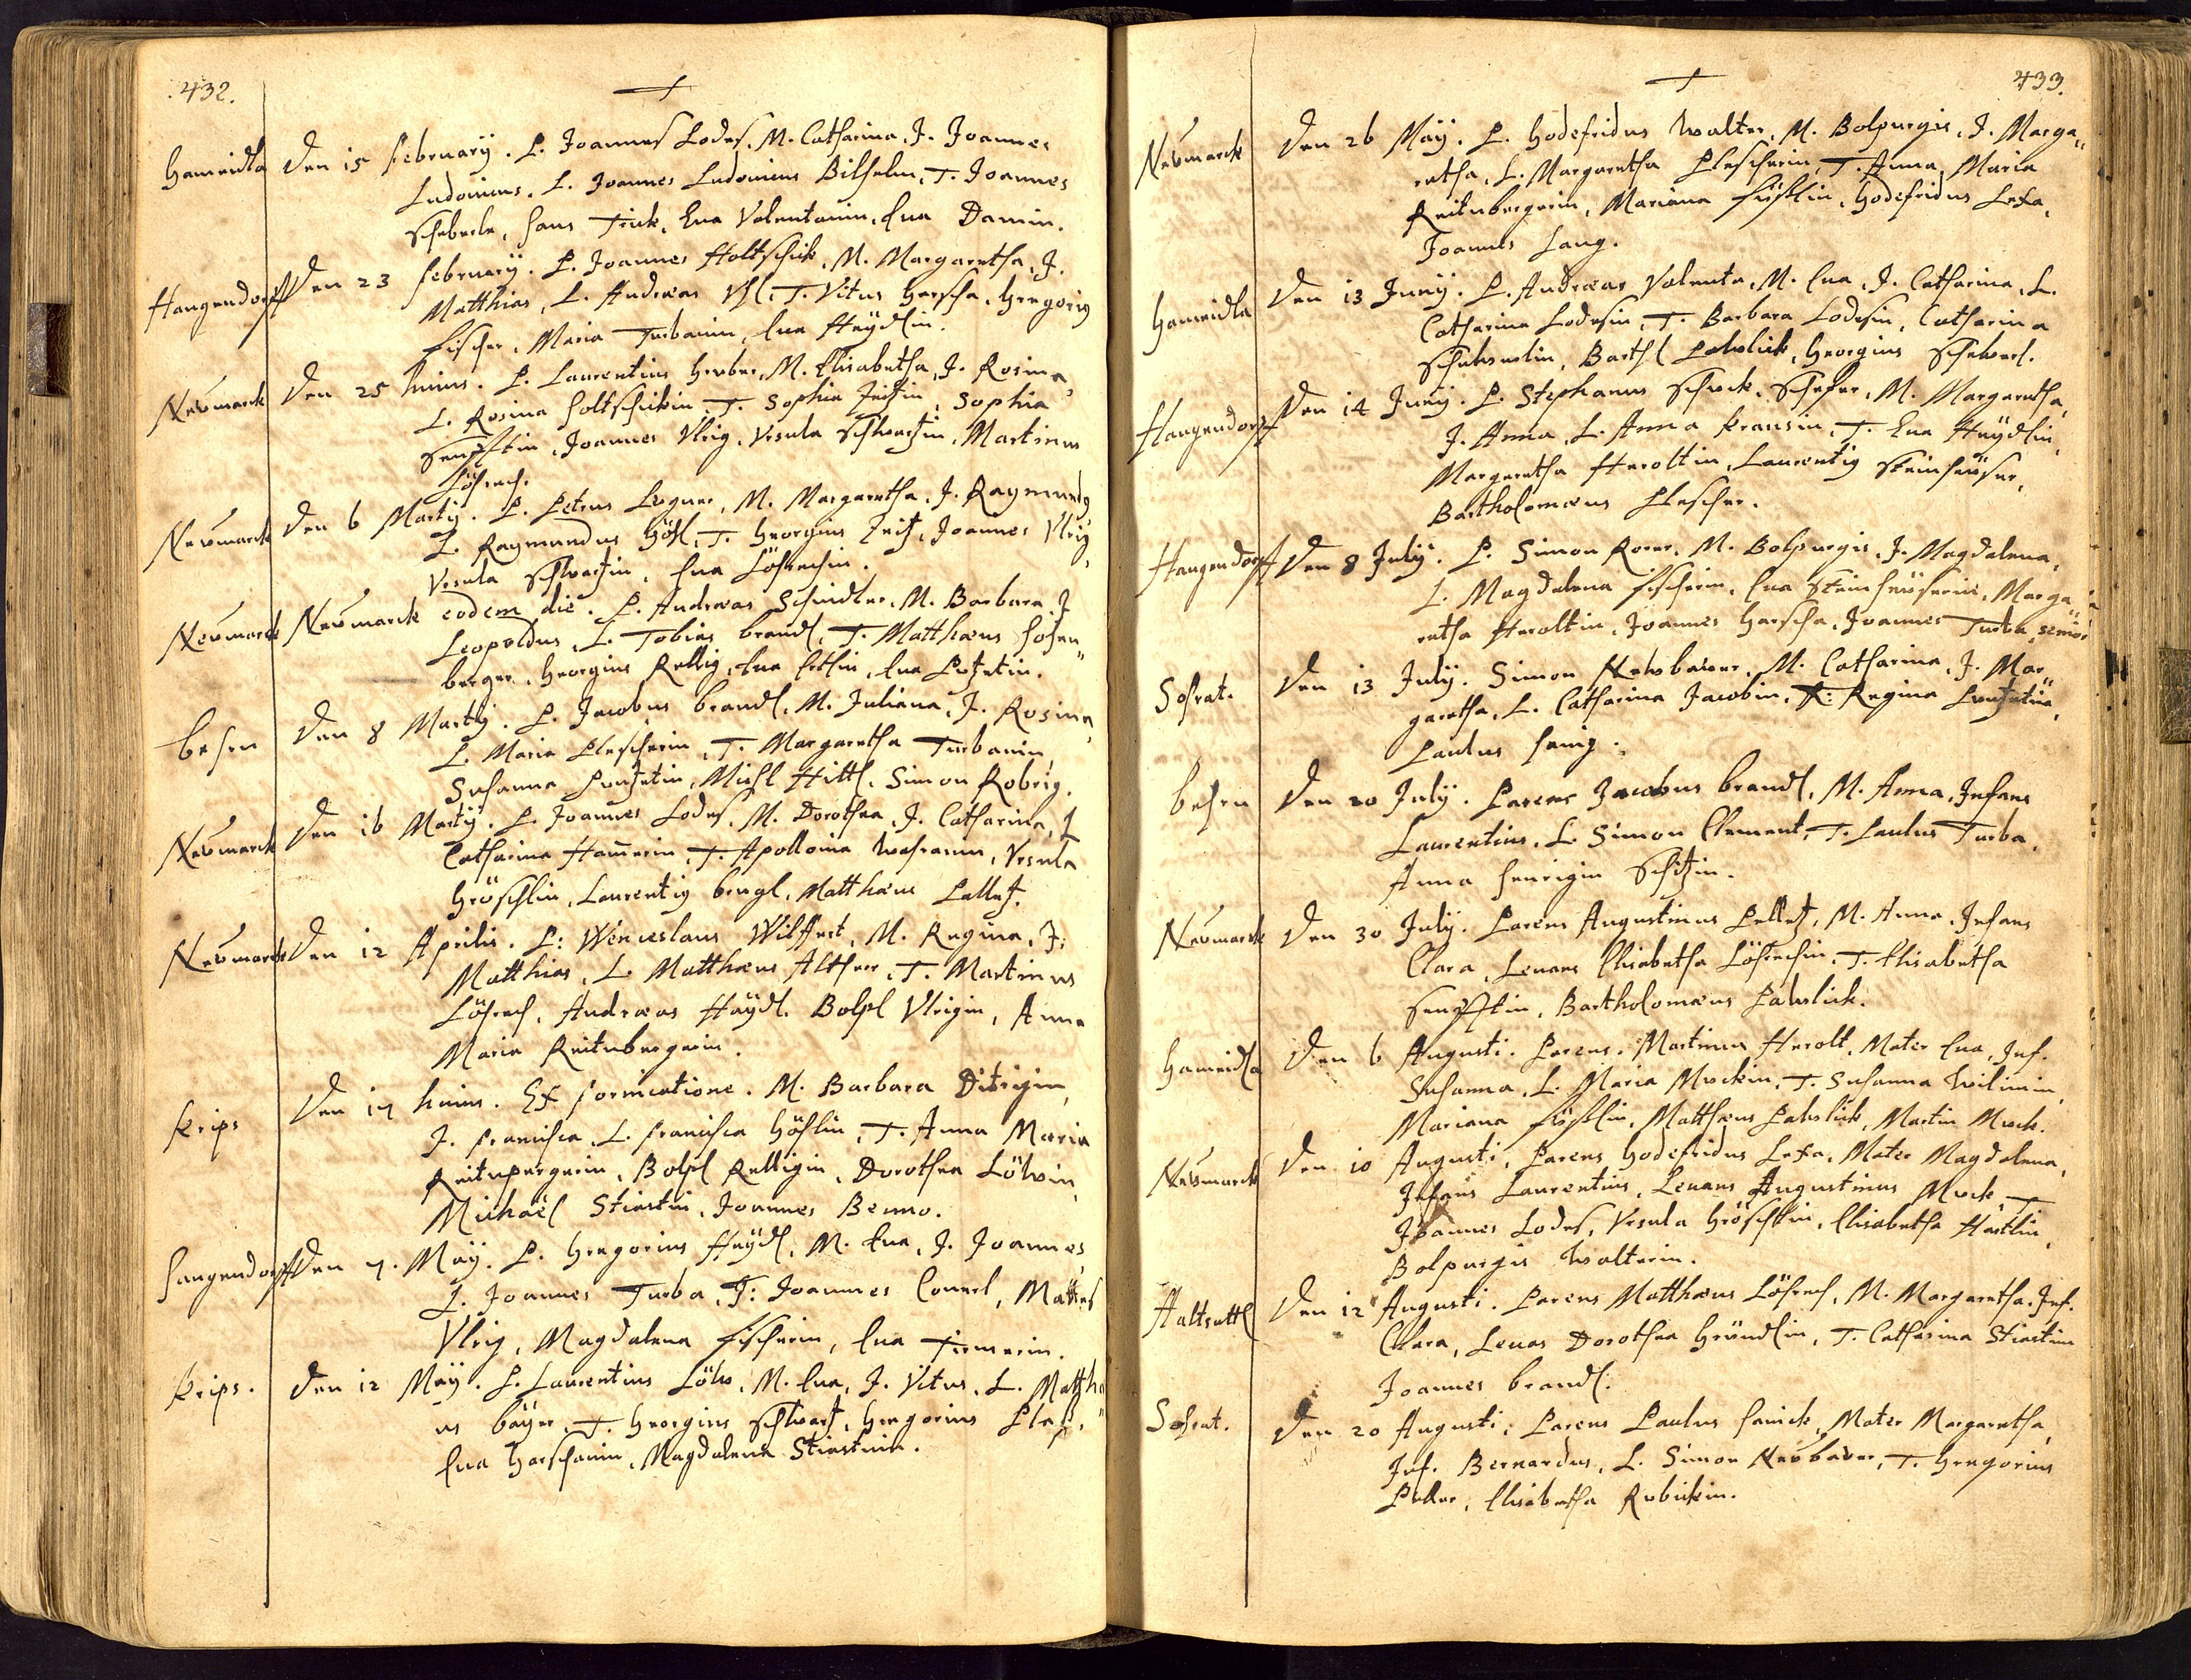 432.
Hameidla Den 15 February. P. Joannes Lodes. M. Catharina. J. Joannes
Ludovicus. L. Joannes Ludovicus Bilhelm, T. Joannes
Scheberle, Hans Frick, Eva Valentanin, Eva Damin.
Hangendorff Den 23 February. P. Joannes Holtschick, M. Margaretha, J.
Matthias, L. Andreas Vhl, T. Vitus Harscha, Gregorig
Fischer, Maria Turbanin, Eva Haÿdlin.
Neümarck Den 25 huius. P. Laurentius Gerber, M. Elisabetha, J. Rosina,
L. Rosina Holtschickin, T. Sophia Zeitzin, Sophia
Senfftin, Joannes Vlrig, Vrsula Schwartzin, Martinus
Löhrech.
Neümarck Den 6 Martij. P. Petrus Legner, M. Margaretha, J. Raymundg
L. Raymundus Hösl, T. Georgius Zeitz, Joannes Vlrig,
Vrsula Schwartzin, Eva Löhrechin.
Neümarck Neümarck eodem die. P. Andreas Schindler, M. Barbara. J
Leopoldus, L. Tobias Brandl, T. Matthæus Hohen„
berger, Georgius Rellig, Eva Ertlin, Eva Putzetin.
Behrn Den 8 Martij. P. Jacobus Brandl, M. Juliana, J. Rosina,
L. Maria Plescherin, T. Margaretha Turbanin,
Susanna Puntzetin, Michl Hittl, Simon Robrig.
Neümarck Den 16 Martij. P. Joannes Lodes, M. Dorothea, J. Catharina, L
Catharina Ham̄erin, T. Apollonia, Vrsula
Gröschlin, Laurentig Bengl, Matthæus Pelletz.
Neümarck Den 12 Aprilis. P: Wenceslaus Wilffert, M. Regina, J:
Matthias, L. Matthæus Altherr, T. Martinus
Löhrech, Andreas Haÿdl, Bolpl Vlrigin, Anna
Maria Reitenbergerin.
Krips Den 17 huius. Ex fornicatione. M. Barbara Ditrigin,
J. Francisca, L. Francisca Höslin, T. Anna Maria
Reitenpergerin, Bolpl Relligin, Dorothea Löwin,
Michaël Stiastni, Joannes Benno.
Hangendorff Den 7. Maÿ. P. Gregorius Haÿdl, M. Eva, J. Joannes,
L. Joannes Turba, T: Joannes Conerl, Matthes
Vlrig, Magdalena Fischerin, Eva Tirmerin.
Krips. Den 12 Maÿ. P. Laurentius Löw, M. Eva, J. Vitus, L. Matthæ
us Baÿer, T. Georgius Schwartz, Gregorius Plesch„
Eva Harschanin, Magdalena Stiastnin.
433.
Neümarck Den 26 Maÿ. P. Godefridus Walter, M. Bolpurgis, J. Marga„
retha, L. Margaretha Plescherin, T. Anna Maria
Reitenbergerin, Mariana Füstlin, Godefridus Lexa,
Joannes Lang.
Hameidla Den 13 Junij. P. Andreas Valenta, M. Eva, J. Catharina, L.
Catharina Lodesin, T. Barbara Lodesin, Catharina
Scheberlin, Barthl Pawlick, Georgius Scheberl.
Hangendorff Den 14 Junij. P. Stephanus Scheck, Schefer, M. Margaretha,
J. Anna, L. Anna Krausin, T. Eva Haÿdlin,
Margaretha Heroltin, Laurentig Steinheüser,
Bartholomæus Plescher.
Hangendorff Den 8 Julij. P. Simon Rorer, M. Bolpurgis, J. Magdalena,
L. Magdalena Fischerin, Eva Steinheüserin, Marga„
retha Heroltin, Joannes Harscha, Joannes Turba senior
Sohrat. Den 13 Julij. Simon Newbawer, M. Catharina, J. Mar„
garetha, L. Catharina Jacobin, T: Regina Puntzetin,
Paulus Hanig.
Behrn Den 20 Julij. Parens Jacobus Brandl, M. Anna, Infans
Laurentius, L. Simon Clement, T. Paulus Turba,
Anna Henrigin Schützin.
Neümarck Den 30 Julij. Parens Augustinus Pelletz, M. Anna, Infans
Clara, Levans Elisabetha Löhrechin, T. Elisabetha
Senfftin, Bartholomæus Pawlick.
Hameidla Den 6 Augusti. Parens. Martinus Herolt, Mater Eva, Inf.
Susanna, L. Maria Muckin, T. Susanna Wilimin,
Mariana Füstlin, Matthæus Pawlick, Martin Muck.
Neümarck Den 10 Augusti, Parens Godefridus Lexa, Mater Magdalena,
Infans Laurentius, Levans Augustinus Muck, T
Joannes Lodes, Vrsula Gröschlin, Elisabetha Härtlin,
Bolpurgis Walterin.
Haltrattl Den 12 Augusti. Parens Matthæus Löhrech, M. Margaretha, Inf.
Clara, Levas Dorothea Gründlin, T. Catharina Stiastnin
Joannes Brandl.
Sohrat. Den 20 Augusti, Parens Paulus Hanick, Mater Margaretha,
Inf. Bernardus, L. Simon Neübawer, T. Gregorius
Peller, Elisabetha Rubickin.